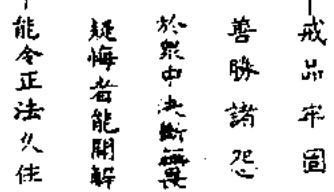 戒品牢固
善勝諸怨
於眾中決斷無畏
疑悔者能開解
能令正法久住